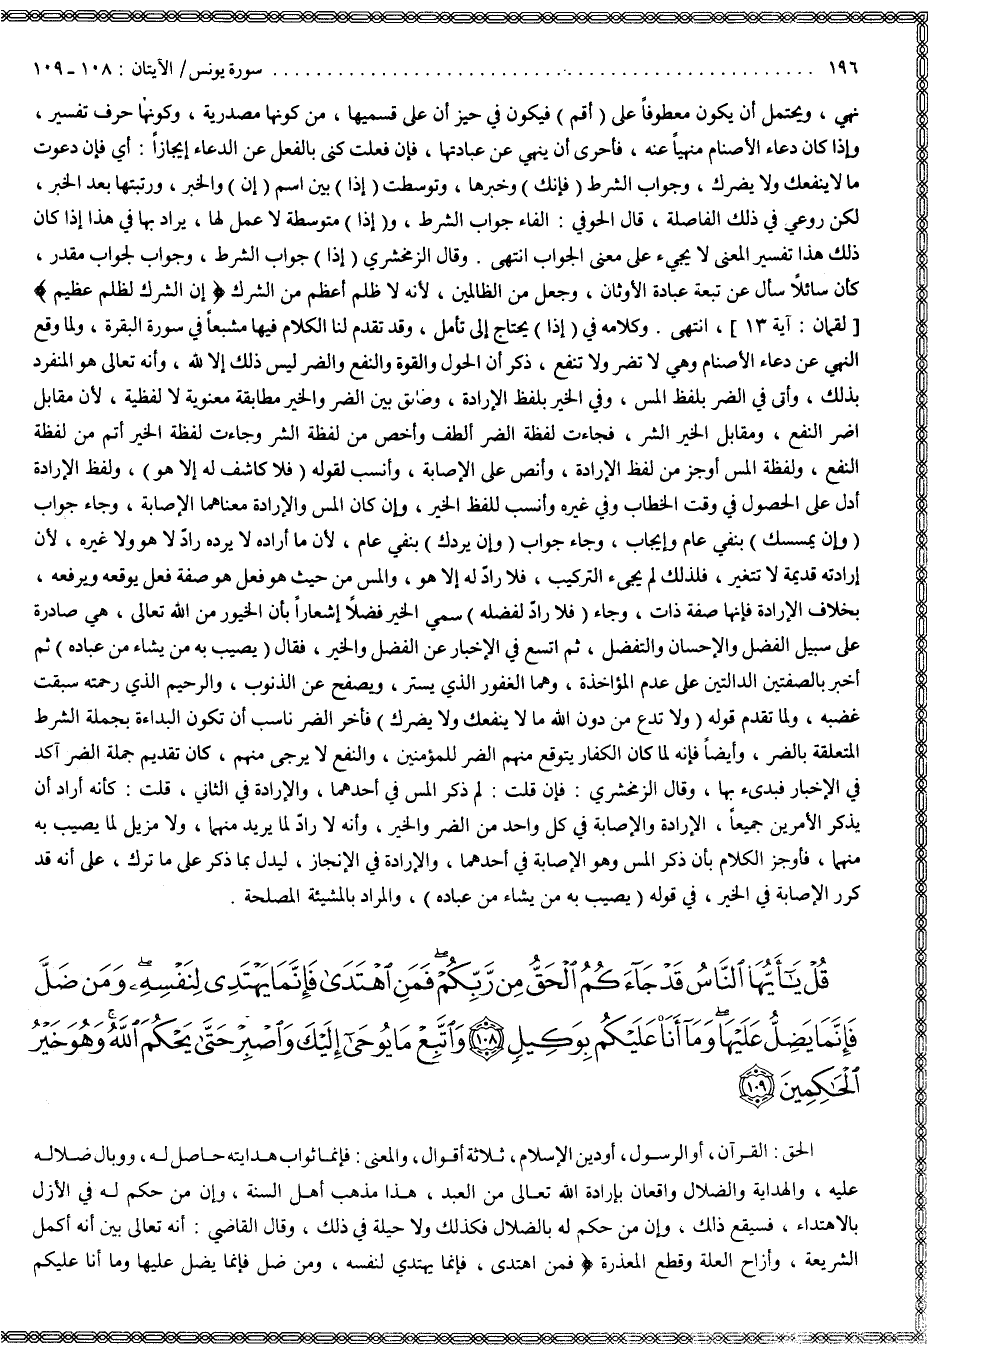 ١٩٦ ............................................................ سورة يونس/ الآيتان : ١٠٨ - ١٠٩
نهي ، ويحتمل أن يكون معطوفاً على ( أقم ) فيكون في حيز أن على قسميها ، من كونها مصدرية ، وكونها حرف تفسير ،
وإذا كان دعاء الأصنام منهياً عنه ، فأحرى أن ينهي عن عبادتها ، فإن فعلت كنى بالفعل عن الدعاء إيجازاً : أي فإن دعوت
ما لا ينفعك ولا يضرك ، وجواب الشرط ( فإنك ) وخبرها ، وتوسطت ( إذا ) بين اسم ( إن ) والخبر ، ورتبتها بعد الخبر ،
لكن روعي في ذلك الفاصلة ، قال الحوفي : الفاء جواب الشرط ، و( إذا ) متوسطة لا عمل لها ، يراد بها في هذا إذا كان
ذلك هذا تفسير المعنى لا يجيء على معنى الجواب انتهى . وقال الزمخشري ( إذا ) جواب الشرط ، وجواب لجواب مقدر ،
كأن سائلاً سأل عن تبعة عبادة الأوثان ، وجعل من الظالمين ، لأنه لا ظلم أعظم من الشرك ﴿ إن الشرك لظلم عظيم ﴾
[ لقمان : آية ١٣ ] ، انتهى . وكلامه في ( إذا ) يحتاج إلى تأمل ، وقد تقدم لنا الكلام فيها مشبعاً في سورة البقرة ، ولما وقع
النهي عن دعاء الأصنام وهي لا تضر ولا تنفع ، ذكر أن الحول والقوة والنفع والضر ليس ذلك إلا لله ، وأنه تعالى هو المنفرد
بذلك ، وأتى في الضر بلفظ المس ، وفي الخير بلفظ الإرادة ، وطابق بين الضر والخير مطابقة معنوية لا لفظية ، لأن مقابل
اضر النفع ، ومقابل الخير الشر ، فجاءت لفظة الضر ألطف وأخص من لفظة الشر وجاءت لفظة الخير أتم من لفظة
النفع ، ولفظة المس أوجز من لفظ الإرادة ، وأنص على الإصابة ، وأنسب لقوله ( فلا كاشف له إلا هو ) ، ولفظ الإرادة
أدل على الحصول في وقت الخطاب وفي غيره وأنسب للفظ الخير ، وإن كان المس والإرادة معناهما الإصابة ، وجاء جواب
( وإن يمسسك ) بنفي عام وإيجاب ، وجاء جواب ( وإن يردك ) بنفي عام ، لأن ما أراده لا يرده رادّ لا هو ولا غيره ، لأن
إرادته قديمة لا تتغير ، فلذلك لم يجيء التركيب ، فلا رادّ له إلا هو ، والمس من حيث هو فعل هو صفة فعل يوقعه ويرفعه ،
بخلاف الإرادة فإنها صفة ذات ، وجاء ( فلا رادّ لفضله ) سمي الخير فضلاً إشعاراً بأن الخيور من الله تعالى ، هي صادرة
على سبيل الفضل والإحسان والتفضل ، ثم اتسع في الإخبار عن الفضل والخير ، فقال ( يصيب به من يشاء من عباده ) ثم
أخبر بالصفتين الدالتين على عدم المؤاخذة ، وهما الغفور الذي يستر ، ويصفح عن الذنوب ، والرحيم الذي رحمته سبقت
غضبه ، ولما تقدم قوله ( ولا تدع من دون الله ما لا ينفعك ولا يضرك ) فأخر الضر ناسب أن تكون البداءة بجملة الشرط
المتعلقة بالضر ، وأيضاً فإنه لما كان الكفار يتوقع منهم الضر للمؤمنين ، والنفع لا يرجى منهم ، كان تقديم جملة الضر آكد
في الإخبار فبدىء بها ، وقال الزمخشري : فإن قلت : لم ذكر المس في أحدهما ، والإرادة في الثاني ، قلت : كأنه أراد أن
يذكر الأمرين جميعاً ، الإرادة والإصابة في كل واحد من الضر والخير ، وأنه لا رادّ لما يريد منهما ، ولا مزيل لما يصيب به
منهما ، فأوجز الكلام بأن ذكر المس وهو الإصابة في أحدهما ، والإرادة في الإنجاز ، ليدل بما ذكر على ما ترك ، على أنه قد
كرر الإصابة في الخير ، في قوله ( يصيب به من يشاء من عباده ) ، والمراد بالمشيئة المصلحة .
قُلْ يَٰٓأَيُّهَا ٱلنَّاسُ قَدْ جَآءَكُمُ ٱلْحَقُّ مِن رَّبِّكُمْ ۖ فَمَنِ ٱهْتَدَىٰ فَإِنَّمَا يَهْتَدِى لِنَفْسِهِۦ ۖ وَمَن ضَلَّ
فَإِنَّمَا يَضِلُّ عَلَيْهَا ۖ وَمَآ أَنَا۠ عَلَيْكُم بِوَكِيلٍ ﴿١٠٨﴾ وَٱتَّبِعْ مَا يُوحَىٰٓ إِلَيْكَ وَٱصْبِرْ حَتَّىٰ يَحْكُمَ ٱللَّهُ ۚ وَهُوَ خَيْرُ
ٱلْحَٰكِمِينَ ﴿١٠٩﴾
الحق : القرآن ، أو الرسول ، أو دين الإسلام ، ثلاثة أقوال ، والمعنى : فإنما ثواب هدايته حاصل له ، ووبال ضلاله
عليه ، والهداية والضلال واقعان بإرادة الله تعالى من العبد ، هذا مذهب أهل السنة ، وإن من حكم له في الأزل
بالاهتداء ، فسيقع ذلك ، وإن من حكم له بالضلال فكذلك ولا حيلة في ذلك ، وقال القاضي : أنه تعالى بين أنه أكمل
الشريعة ، وأزاح العلة وقطع المعذرة ﴿ فمن اهتدى ، فإنما يهتدي لنفسه ، ومن ضل فإنما يضل عليها وما أنا عليكم